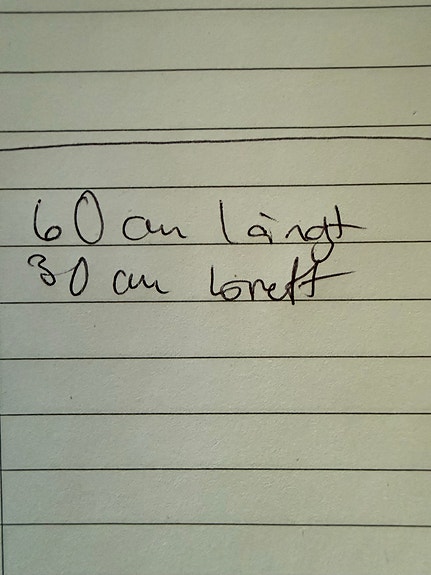 60 cm långt
30 cm brett